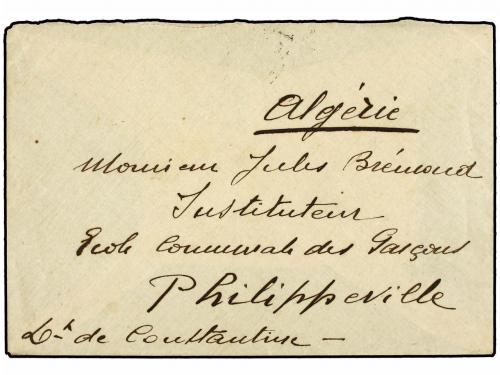 Algérie
Monsieur Jules Brémond
Instituteur
Ecole Communale des Garçons
Philippeville
Dt de Constantine —